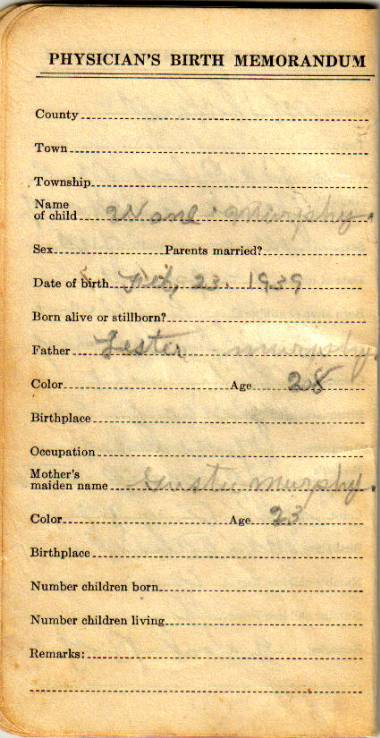 PHYSICIAN'S BIRTH MEMORANDUM
County
Town
Township
Name
of child Murphy
Sex Parents married?
Date of birth Feb, 23. 1939
Born alive or stillborn?
Father Lester murphy
Color Age 28
Birthplace
Occupation
Mother's
maiden name murphy
Color Age 23
Birthplace
Number children born
Number children living
Remarks: